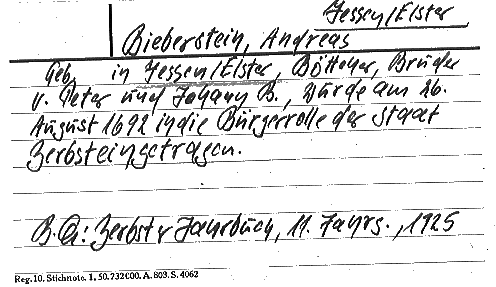 Jessen/Elster
Bieberstein, Andreas
Geb. in Jessen/Elster, Böttcher, Bruder
v. Peter und Johann B., wurde am 26.
August 1692 in die Bürgerrolle der Stadt
Zerbst eingetragen.
B.Q.: Zerbster Jahrbuch, 11. Jahrg., 1925
Reg. 10. Stichnote. 1. 50. 732000. A. 803. S. 4062